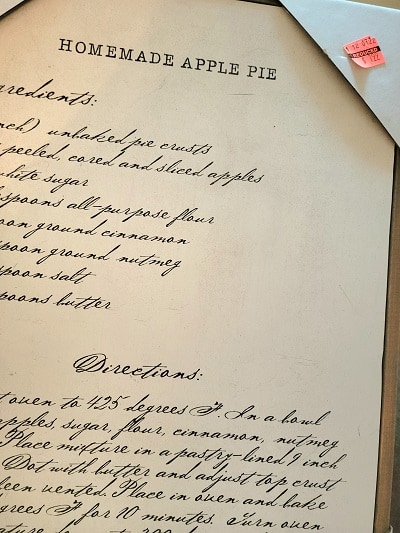 HOMEMADE APPLE PIE
REDUCED
redients:
nch) unbaked pie crusts
peeled, cored and sliced apples
white sugar
spoons all-purpose flour
oon ground cinnamon
poon ground nutmeg
poon salt
poons butter
Directions:
t oven to 425 degrees F. In a bowl
apples, sugar, flour, cinnamon, nutmeg
Place mixture in a pastry-lined 9 inch
Dot with butter and adjust top crust
been vented. Place in oven and bake
grees F for 10 minutes. Turn oven